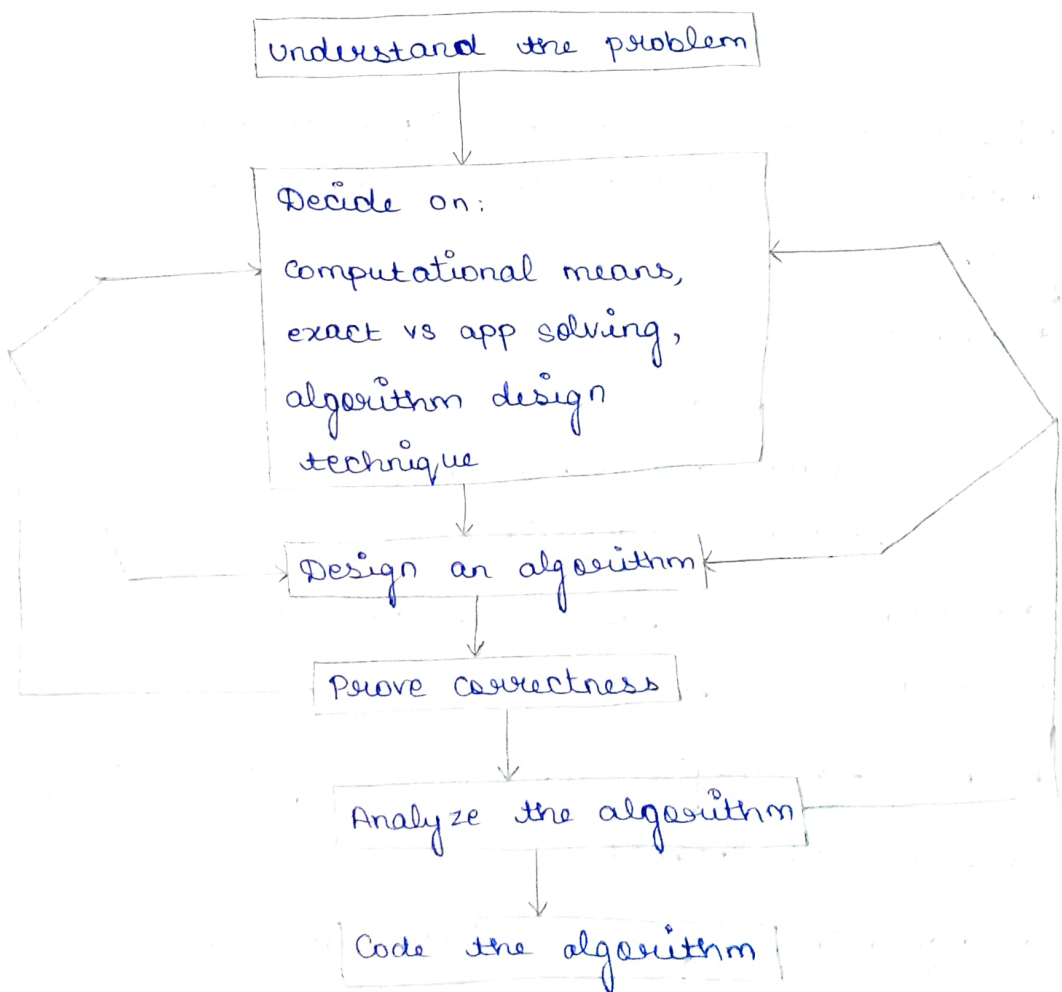 understand the problem
Decide on:
computational means,
exact vs app solving,
algorithm design
technique
Design an algorithm
Prove correctness
Analyze the algorithm
Code the algorithm